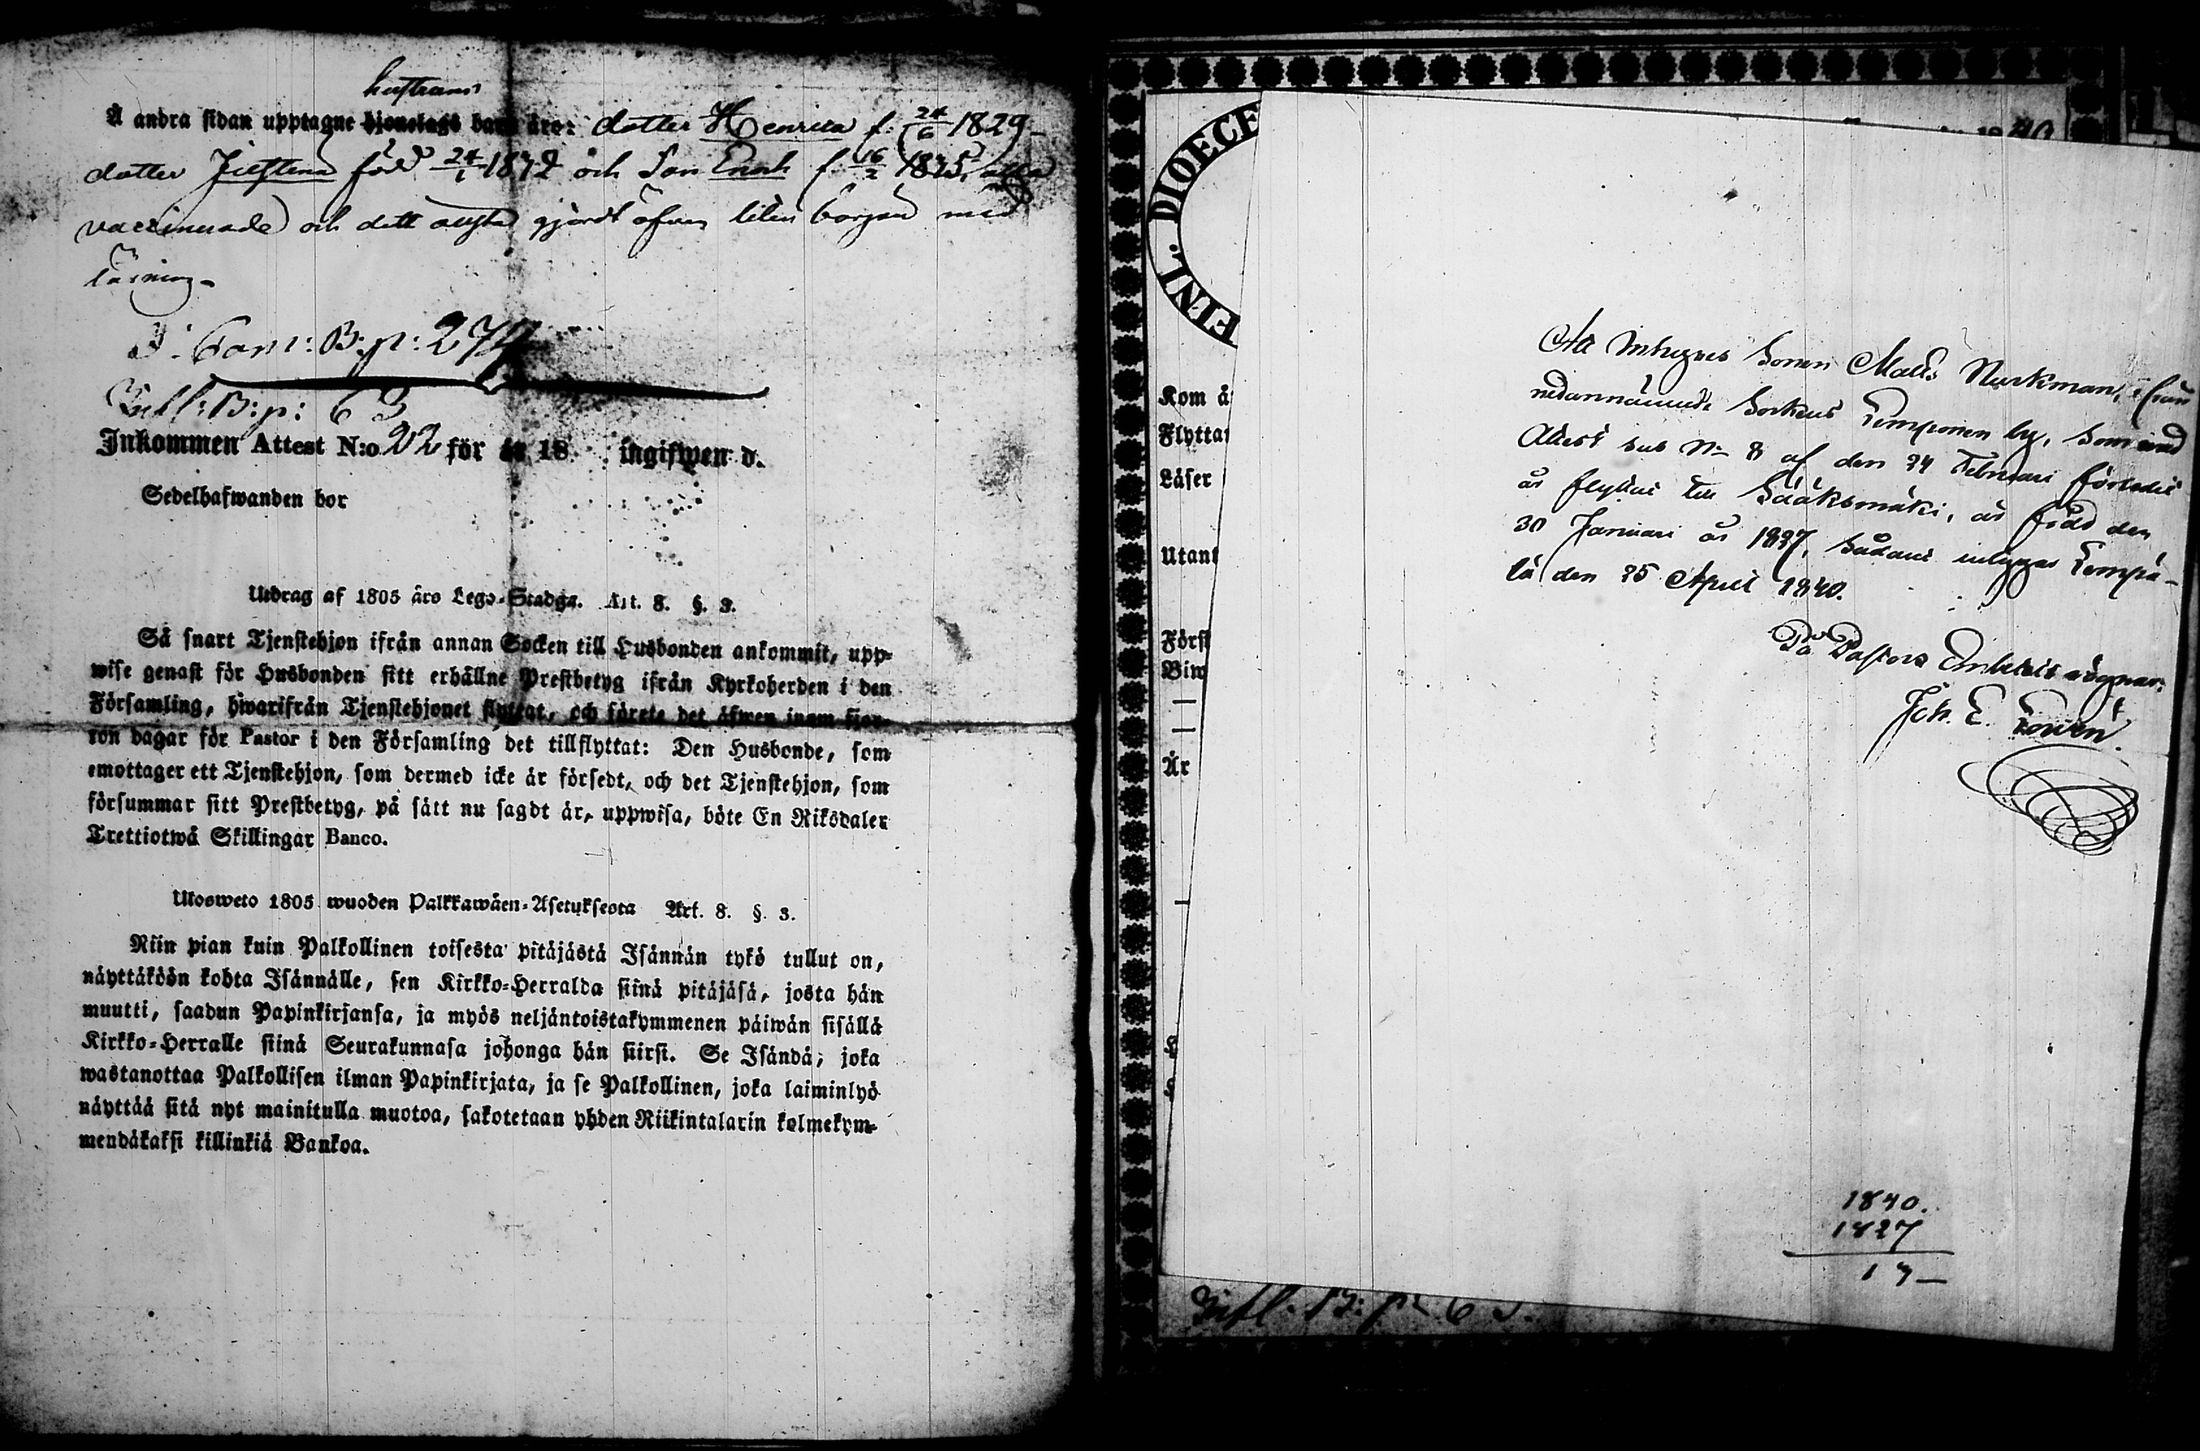 hustruns
Å andra sidan upptagne hjonelags barn äro: dotter Henrica f. 24/6 1829
dotter född 24/1 1832 och Son Enok f. 16/2 1835, alla
vaccinerade och dett äldsta gjordt äfven liten början med
läsning.
Com: B: p: 274
Infl: B: p: 63
Inkommen Attest N:o 22 för år 18 ingifwen d.
Sedelhafwanden bor
Utdrag af 1805 års Lego-Stadga. Art. 8. §. 3.
Så snart Tjenstehjon ifrån annan Socken till Husbonden ankommit, upp-
wise genast för Husbonden sitt erhållne Prestbetyg ifrån Kyrkoherden i den
Församling, hwarifrån Tjenstehjonet flyttat, och förete det äfwen inom fjor-
ton dagar för Pastor i den Församling det tillflyttat: Den Husbonde, som
emottager ett Tjenstehjon, som dermed icke är försedt, och det Tjenstehjon, som
försummar sitt Prestbetyg, på sätt nu sagdt är, uppwisa, böte En Riksdaler
Trettiotwå Skillingar Banco.
Ulosweto 1805 wuoden Palkkawäen-Asetuksesta Art. 8. §. 3.
Niin pian kuin Palkollinen toisesta pitäjästä Isännän tykö tullut on,
näyttäköön kohta Isännälle, sen Kirkko-Herralda siinä pitäjäsä, josta hän
muutti, saadun Papinkirjansa, ja myös neljäntoistakymmenen päiwän sisällä
Kirkko-Herralle siinä Seurakunnasa johonga hän siirsi. Se Isändä, joka
wastanottaa Palkollisen ilman Papinkirjata, ja se Palkollinen, joka laiminlyö
näyttää sitä nyt mainitulla muotoa, sakotetaan yhden Riikintalarin kolmekym-
mendäkaksi killinkiä Bankoa.
FINL. DIOECE
Kom å
Flyttat
Läser
Utant
Först
Biw
Är
Att Inhyses Sonen Matts Murkman, ifrån
nedannämnde Sockens Temponen by, som med
Attest sub N:o 8 af den 24 Februari förledit
år flyttat till Sääksmäki, är född den
30 Januari år 1827, sådant intygas Tempä-
lä den 25 April 1840.
På Pastors Embetets vägnar:
Joh. E.
1840.
1827
13
Infl. B: p: 63.